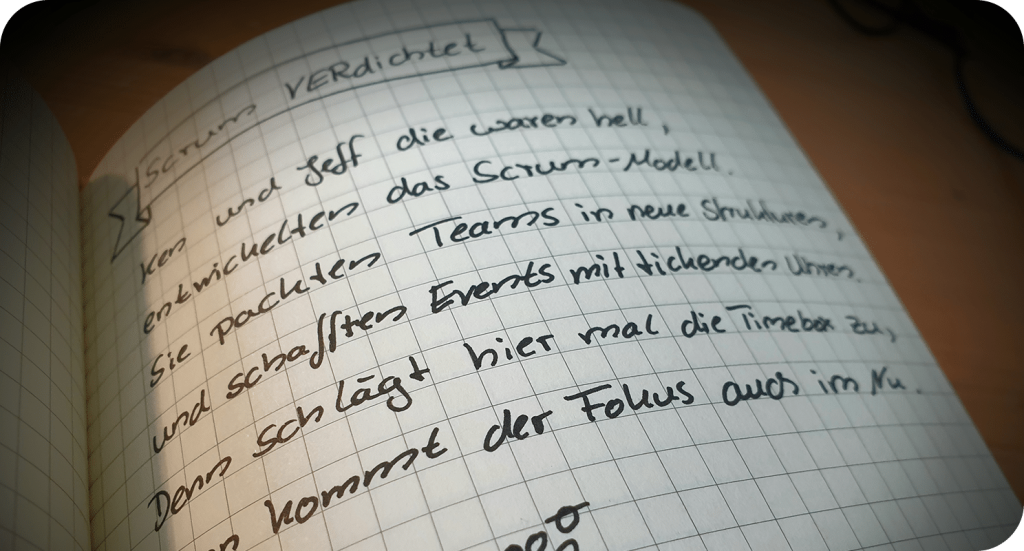 Scrum VERdichtet
Ken und Jeff die waren hell,
entwickelten das Scrum-Modell.
Sie packten Teams in neue Strukturen,
und schafften Events mit tickenden Uhren.
Denn schlägt hier mal die Timebox zu,
kommt der Fokus auch im Nu.